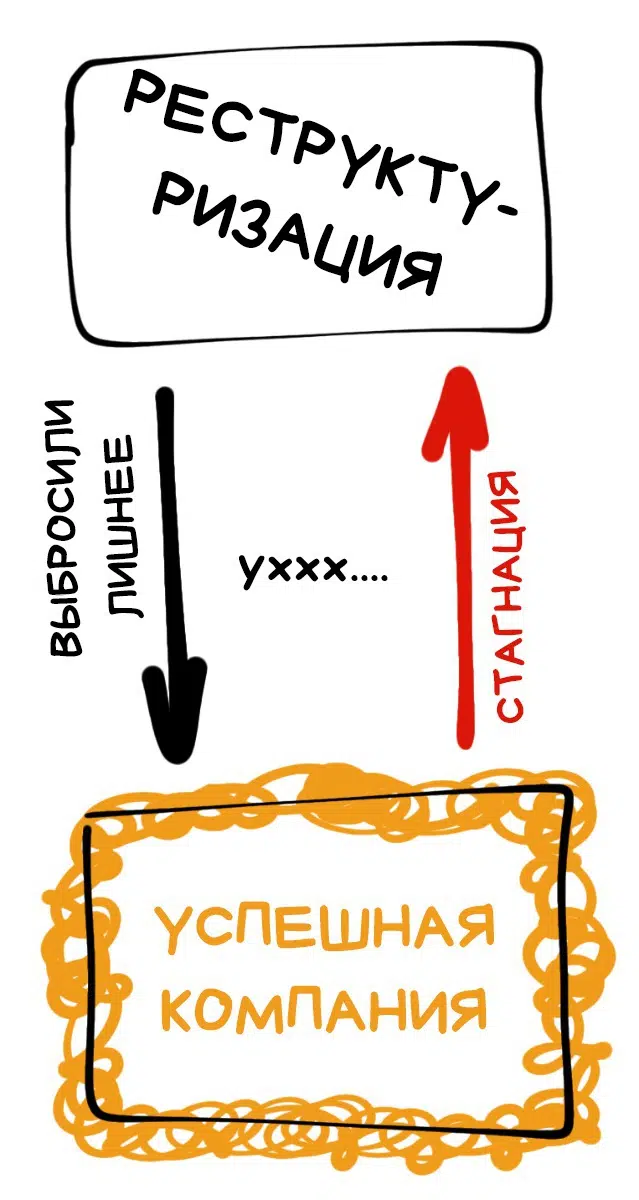 РЕСТРУКТУ-
РИЗАЦИЯ
ВЫБРОСИЛИ
ЛИШНЕЕ
уххх....
СТАГНАЦИЯ
УСПЕШНАЯ
КОМПАНИЯ